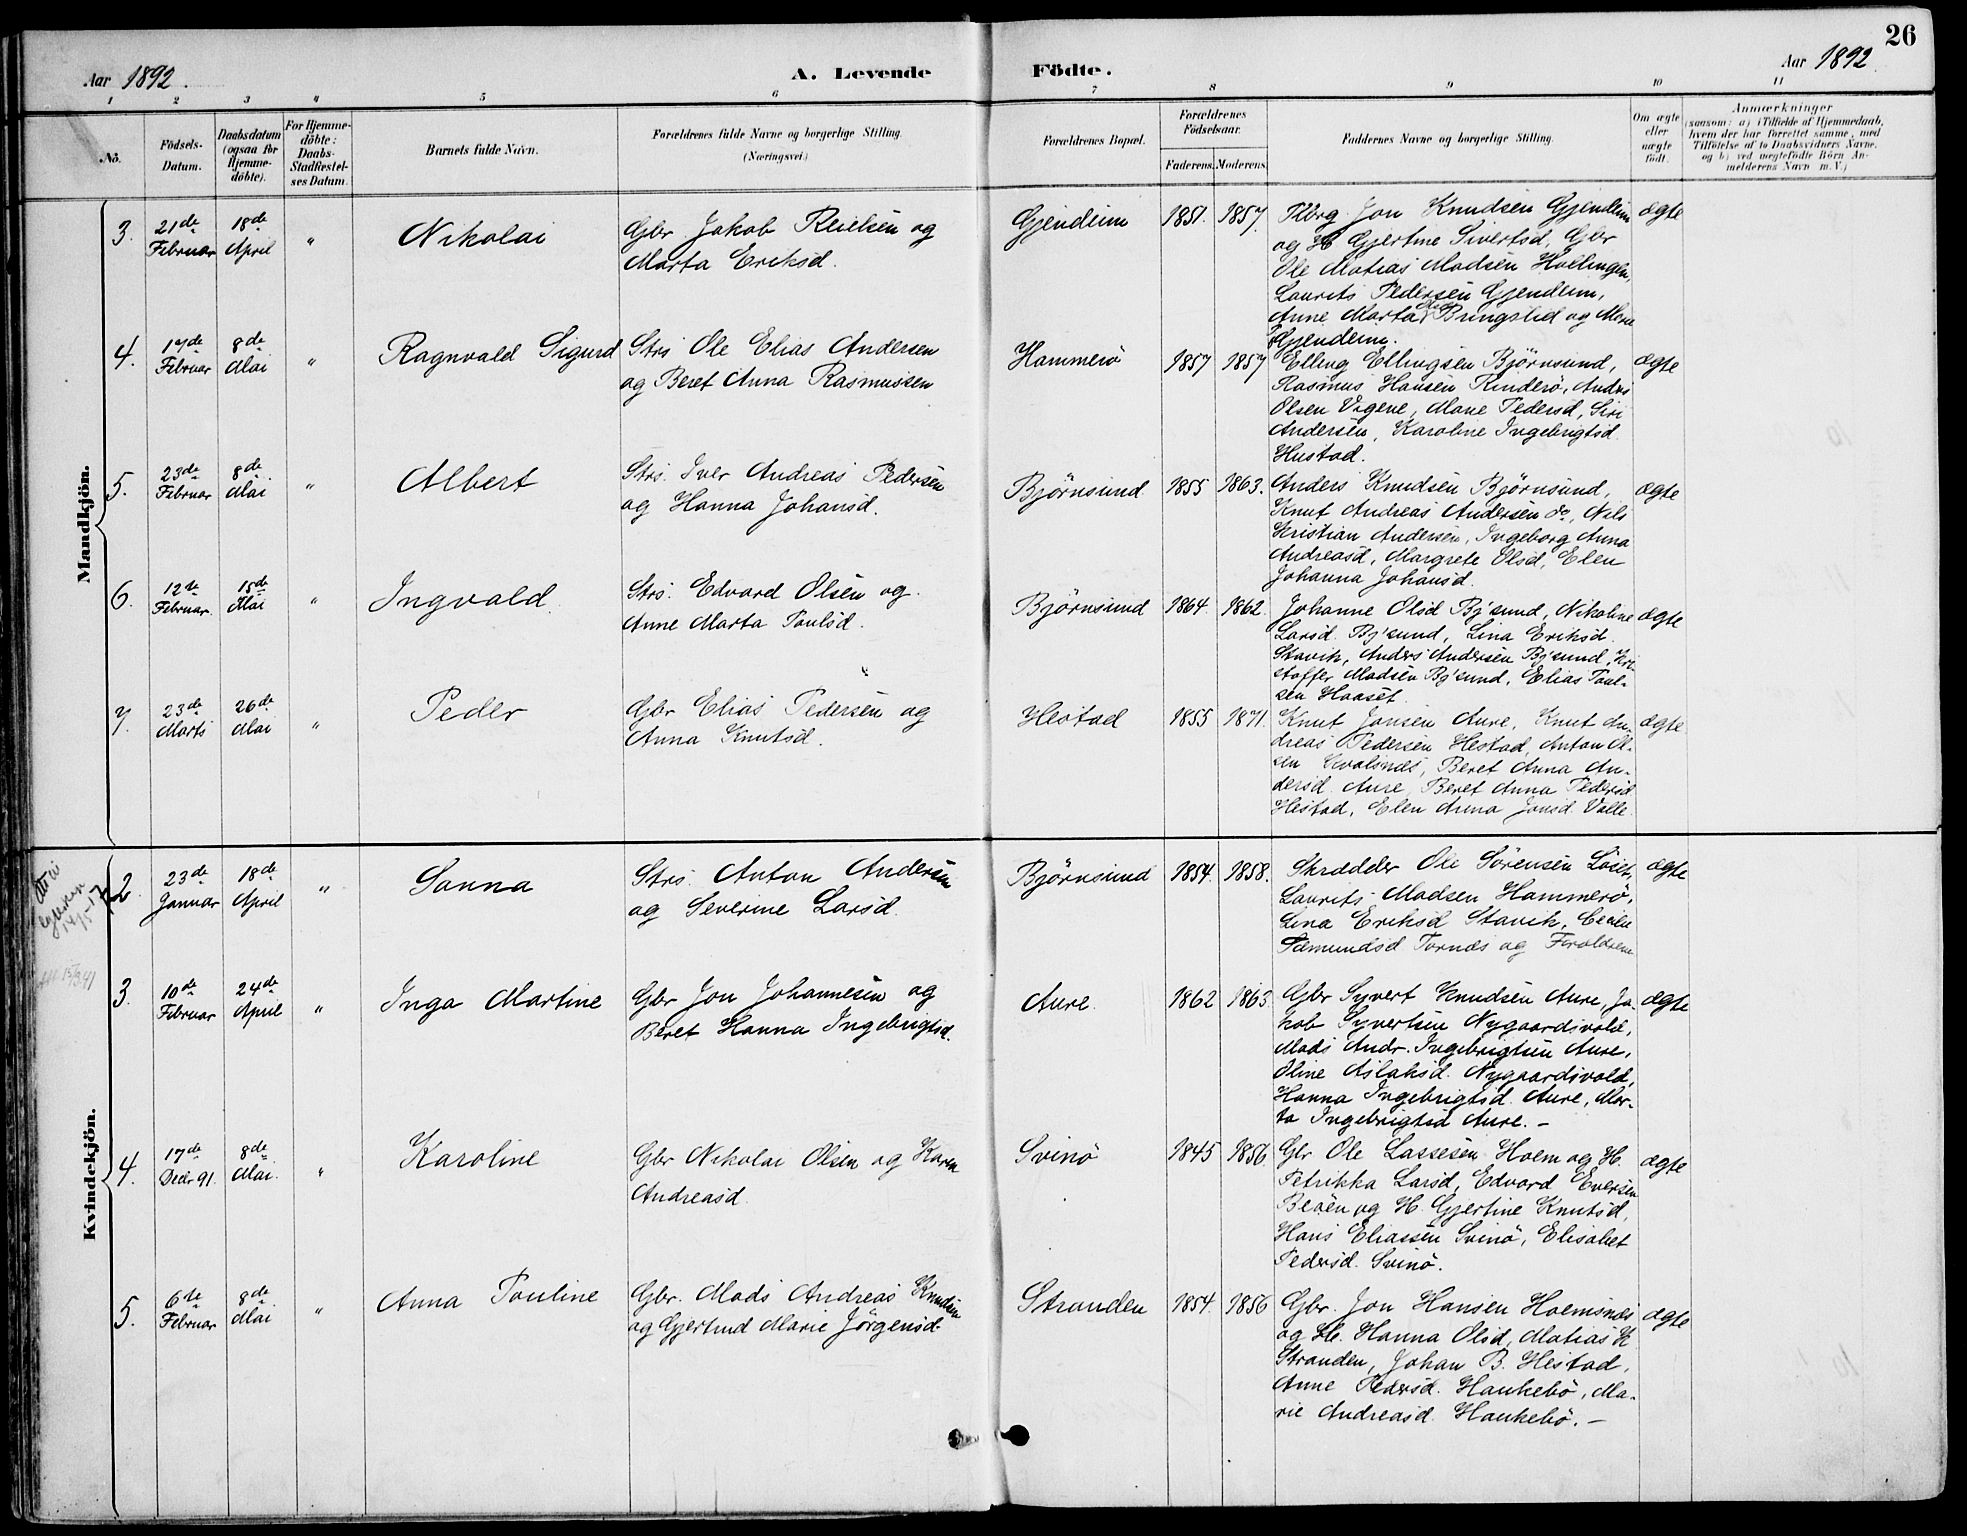 26
Aar 1892.
A. Levende Födte.
Aar 1892.
1 2 3 4 5 6 7 8 9 10 11
No.
Födsels-
Datum.
Daabsdatum
(ogsaa for
Hjemme-
döbte).
For Hjemme-
döbte:
Daabs-
Stadfæstel-
ses Datum.
Barnets fulde Navn.
Forældrenes fulde Navne og borgerlige Stilling.
(Næringsvei.)
Forældrenes Bopæl.
Forældrenes
Födselsaar.
Faderens. Moderens.
Faddernes Navne og borgerlige Stilling.
Om ægte
eller
uægte
födt.
Anmærkninger
(saasom: a) i Tilfælde af Hjemmedaab,
hvem der har forrettet samme, med
Tilföielse af to Daabsvidners Navne,
og b) ved uægtefödte Börn An-
melderens Navn m.V.)
Mandkjön.
3. 21de Februar 18de April " Nikolai
Gbr Jakob Reielsen og
Marta Eriksd.
Gjendem 1851. 1857.
Jon Knudsen Gjendem
og H Gjertine Sivertsd, Gbr
Ole Matias Madsen Hollingen,
Laurits Pedersen Gjendem,
Anne Marta Bringslid og
Gjendem.
ægte
4. 17de Februar 8de Mai " Ragnvald Sigurd
Strs Ole Elias Andersen
og Beret Anna Rasmussen
Hammerö 1857 1857
Elling Ellingsen Björnsund,
Rasmus Hansen Rinderö, Anders
Olsen Vegene, Marie Pedersd, Siri
Andersen, Karoline Ingebrigtsd
Hustad.
ægte
5. 23de Februar 8de Mai " Albert
Strs. Iver Andreas Pedersen
og Hanna Johansd.
Björnsund 1855 1863.
Anders Knudsen Björnsund,
Knut Andreas Andersen do, Nils
Kristian Andersen, Ingeborg Anna
Andreasd, Margrete Olsd, Elen
Johanna Johansd.
ægte
6. 12te Februar. 15de Mai " Ingvald.
Strs. Edvard Olsen og
Anne Marta Poulsd.
Björnsund 1864. 1862.
Johanne Olsd Bj'sund, Nikoline
Larsd. Bj'sund, Lina Eriksd.
Stavik, Anders Andersen Bj'sund, Kri-
stoffer Madsen Bj'sund, Elias Poul-
sen Haaset.
ægte
7. 23de Marts 26de Mai " Peder
Gbr Elias Pedersen og
Anna Knutsd.
Hestad 1855 1871.
Knut Jonsen Aure, Knut An-
dreas Pedersen Hestad, Anton Ol-
sen Hvalsnes, Beret Anna An-
dersd. Aure, Beret Anna Pedersd
Hestad, Elen Anna Jonsd. Valle
ægte
Kvindekjön.
2. 23de Januar 18de April " Sanna
Strs. Anton Andersen
og Severine Larsd.
Björnsund 1854. 1858.
Skrædder Ole Sörensen Löset,
Laurits Madsen Hammerö,
Lina Eriksd Stavik, Cecilie
Sæmundsd Tornæs og Forældrene
ægte
3. 10de Februar 24de April " Inga Martine
Gbr Jon Johannesen og
Beret Hanna Ingebrigtsd.
Aure. 1862 1863.
Gbr Syvert Knudsen Aure, Ja-
kob Syvertsen Nygaardsvold,
Mads Andr. Ingebrigtsen Aure,
Oline Aslaksd. Nygaardsvold,
Hanna Ingebrigtsd. Aure, Mar-
ta Ingebrigtsd Aure. –
ægte
4. 17de Decbr 91. 8de Mai. " Karoline
Gbr Nikolai Olsen og Karen
Andreasd.
Svinö 1845 1856.
Gbr Ole Lassesen Hoem og H.
Petrikka Larsd, Edvard Eversen
Beöen og H. Gjertine Knutsd,
Hans Eliassen Svinö, Elisabet
Pedersd. Svinö.
ægte
5. 6te Februar 8de Mai " Anna Pouline
Gbr. Mads Andreas Knudsen
og Gjertrud Marie Jörgensd.
Stranden 1854. 1856
Gbr. Jon Hansen Hoemsnæs
og H. Hanna Olsd, Matias K
Stranden, Johan B. Hestad,
Anne Pedersd. Haukebö, Ma-
rie Andreasd. Haukebö. –
ægte